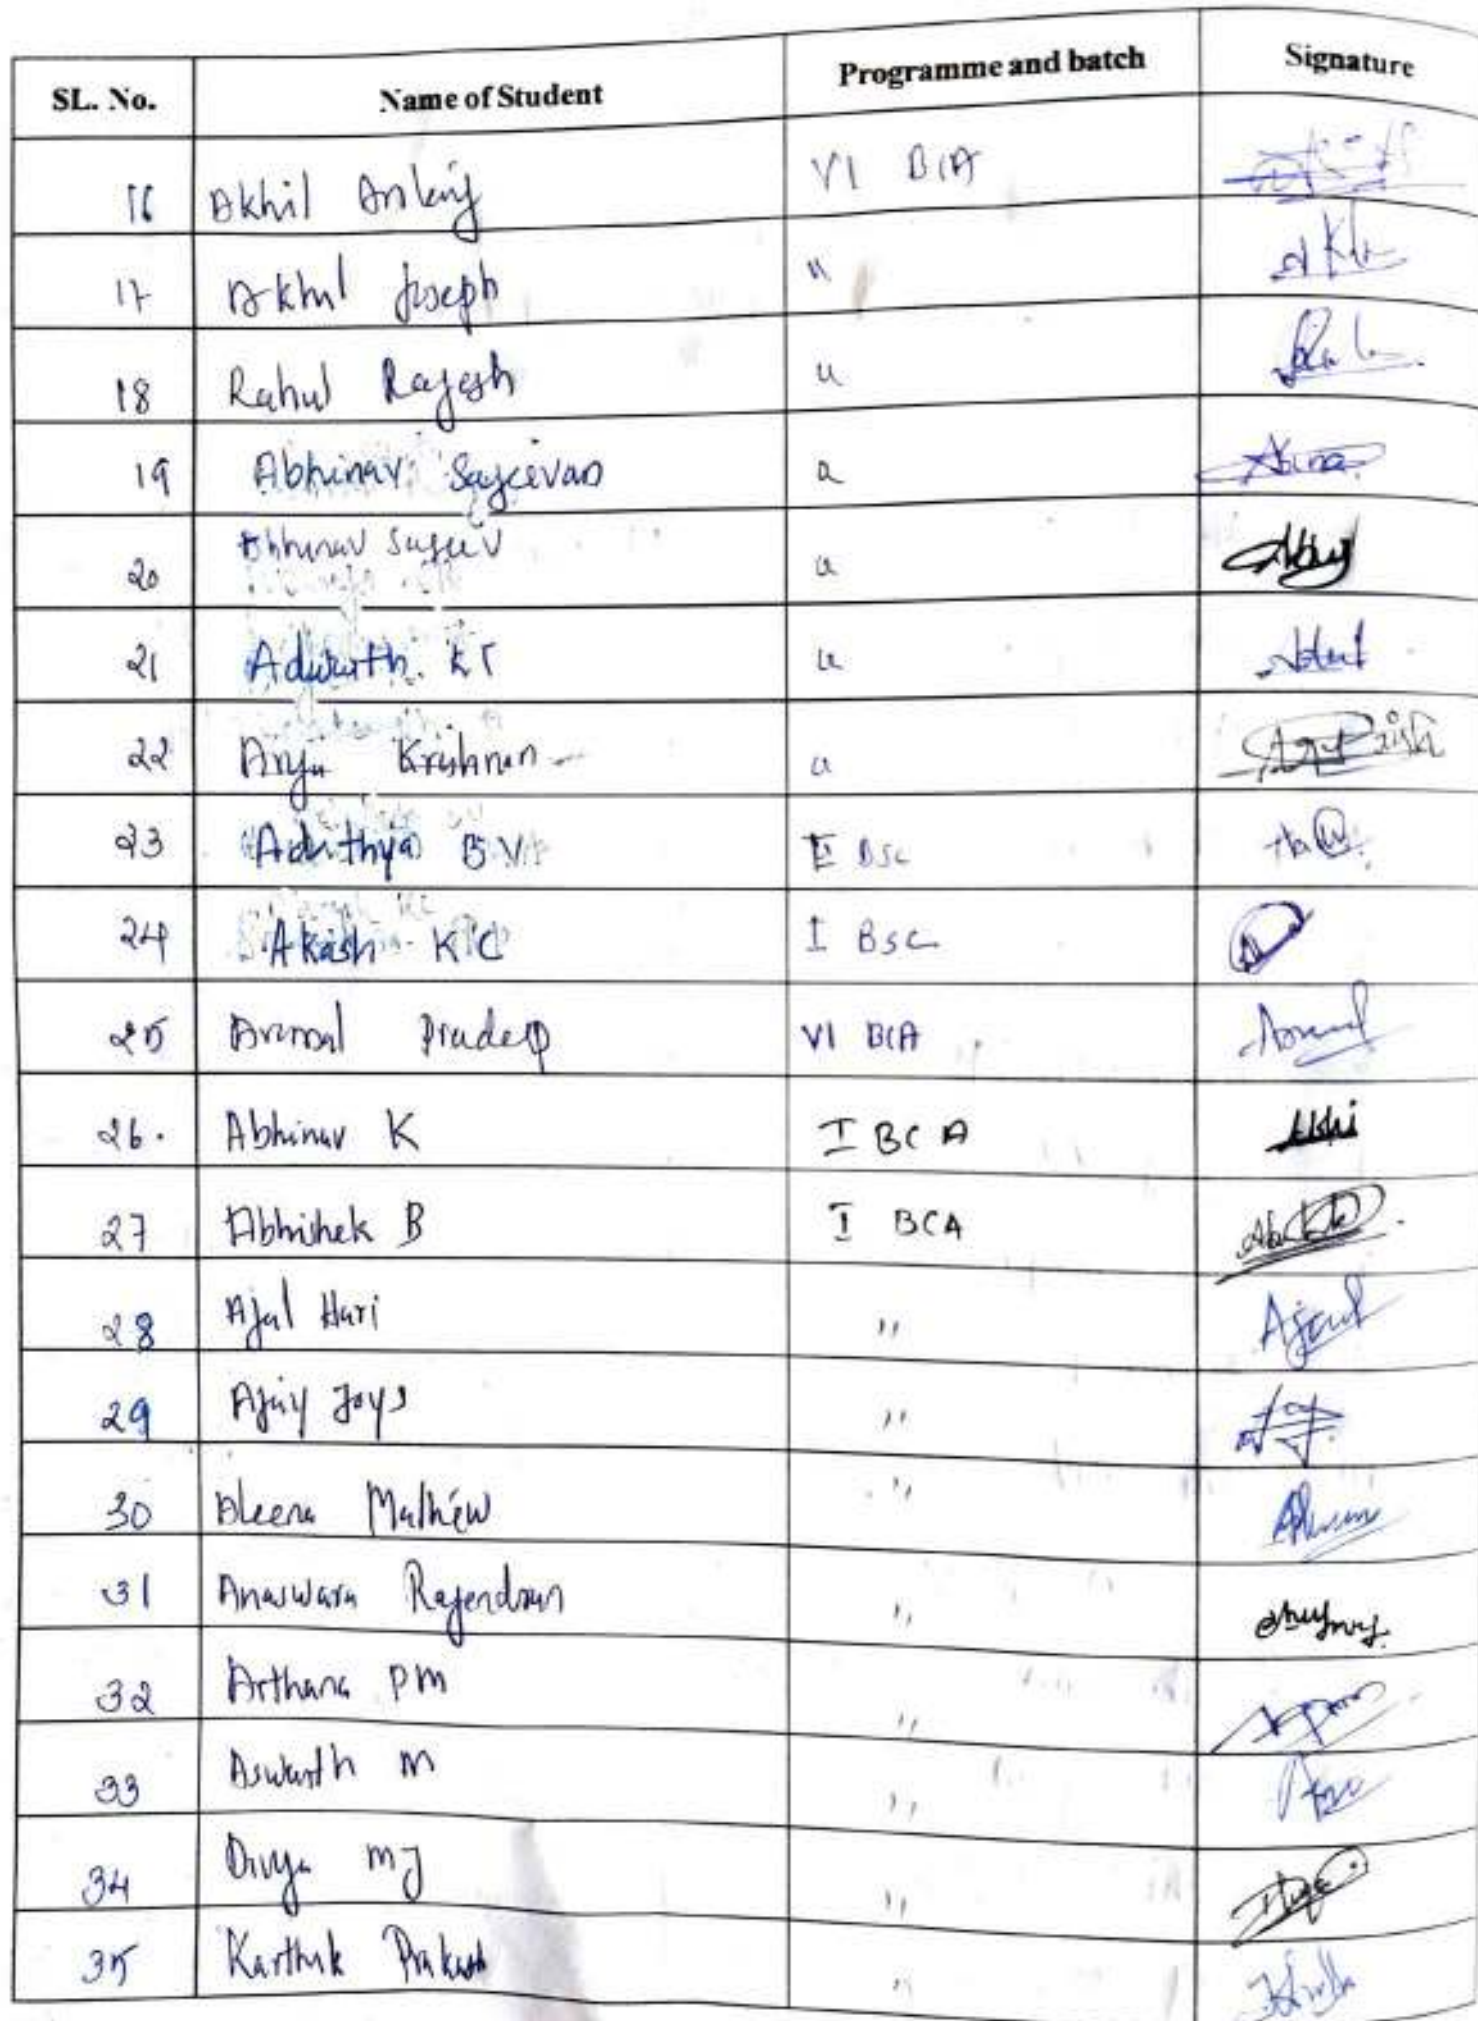 SL. No. Name of Student Programme and batch Signature
16 Akhil VI BCA
17 Akhil Joseph "
18 Rahul Rajesh "
19 Abhinav Sajeevan "
20 Abhinav Sajeev "
21 Adwaith KT "
22 Arya Krishnan "
23 Adithya B V II BSc
24 Akash K C I BSc
25 Anmal Pradeep VI BCA
26. Abhinav K I BCA
27 Abhishek B I BCA
28 Ajal Hari "
29 Ajay Joys "
30 Aleena Mathew "
31 Anaswara Rajendran "
32 Arthana PM "
33 Aswanth M "
34 Divya MJ "
35 Karthik Prakash "